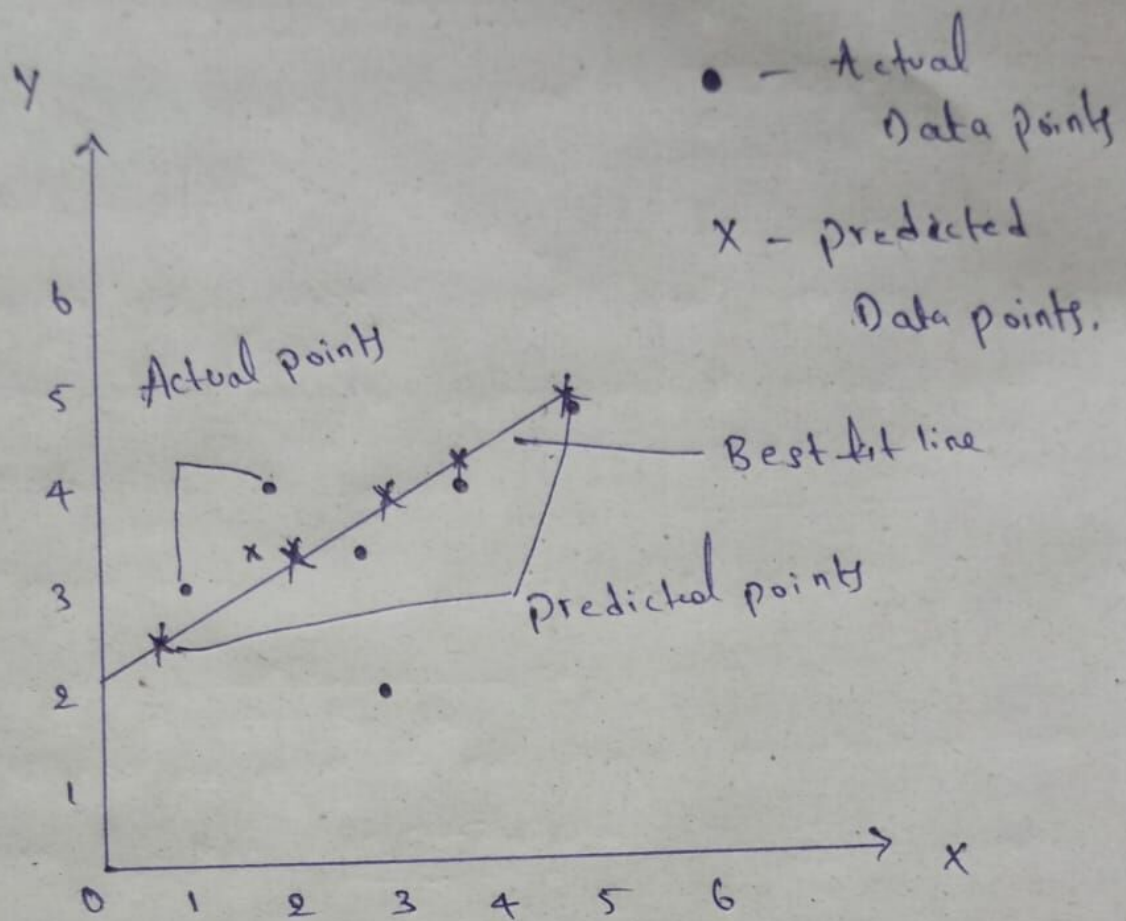 Y
• - Actual
Data points
x - predicted
Data points.
6
Actual points
5
Best fit line
4
3
predicted points
2
1
0 1 2 3 4 5 6
X